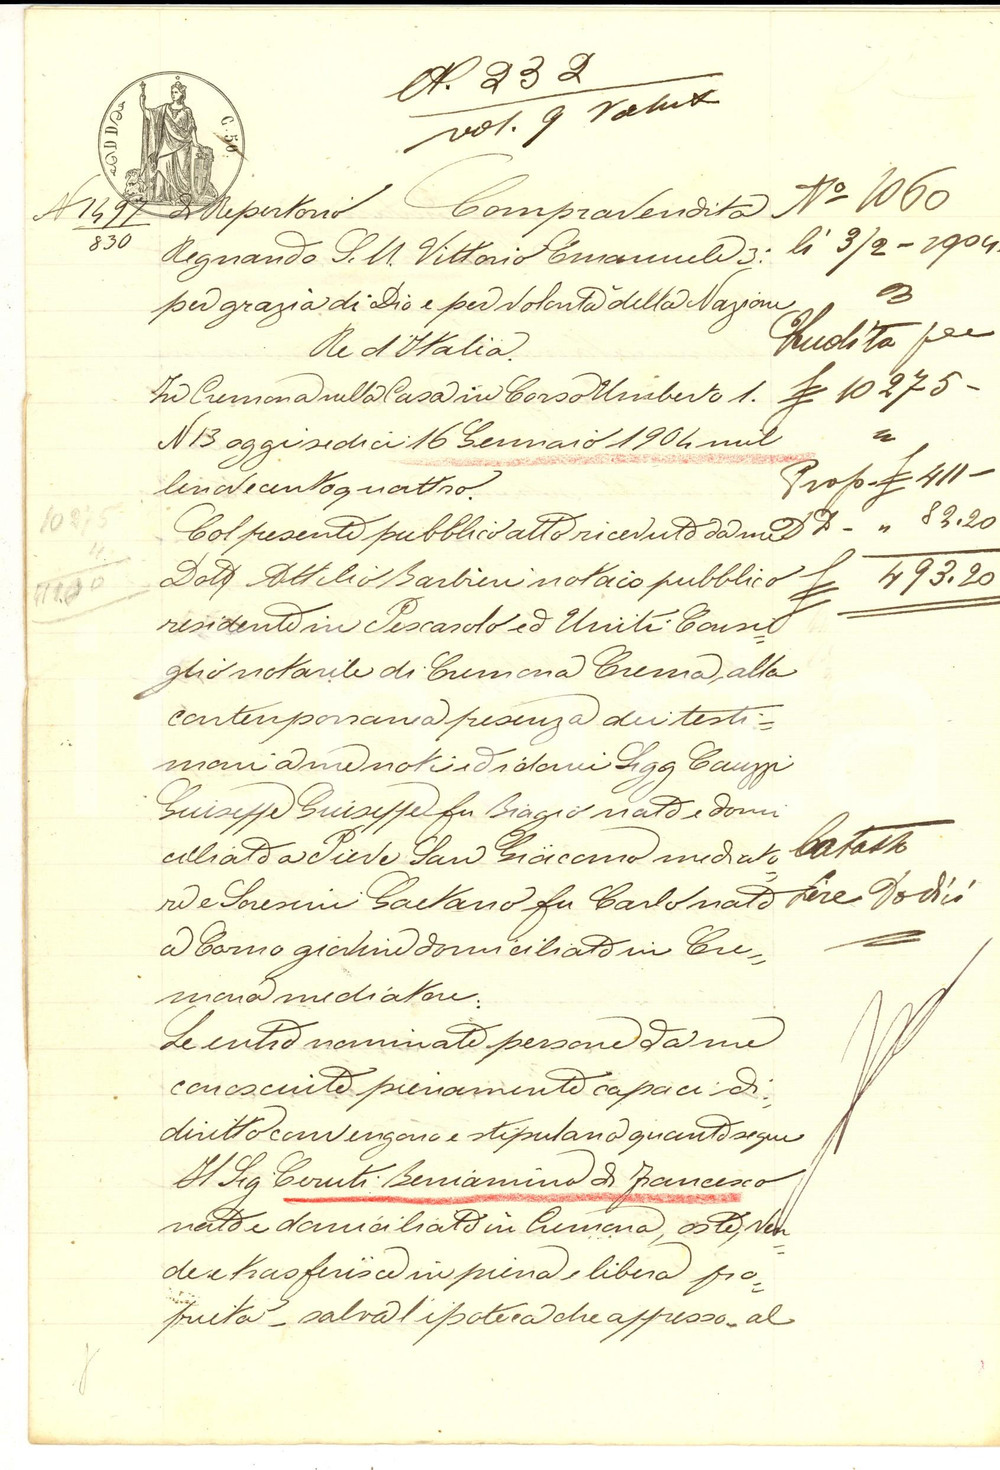 N. 232
vol. 9
C. 50
N 1497 di Repertorio Compravendita
830
Regnando S. M. Vittorio Emanuele 3:
per grazia di Dio e per volontà della Nazione
Re d'Italia.
In Cremona nella Casa in Corso Umberto 1.
N 13 oggi sedici 16 Gennaio 1904 mil
lenovecentoquattro.
Col presente pubblico atto ricevuto da me
Dott Attilio Barbieri notaio pubblico
residente in Pescarolo ed Uniti Consi=
glio notarile di Cremona Crema, alla
contemporanea presenza dei testi=
moni a me noti ed idonei Sigg Cauzzi
Giuseppe Giuseppe fu Biagio nato e domi
ciliato a Pieve San Giacomo mediato
re e Soresini Gaetano fu Carlo nato
a Corno giovine domiciliato in Cre=
mona mediatore.
Le entro nominate persone da me
conosciute pienamente capaci di
diritto convengono e stipulano quanto segue
Il Sig Ceruti Beniamino di Francesco
nato e domiciliato in Cremona, oste, ven=
de e trasferisce in piena e libera pro=
prietà - salva l'ipoteca che appresso - al
No 1060
li 3/2 - 1904
3
Vendita per
£ 10275 -
Prop. £ 411 -
D I - " 82.20
£ 493.20
Catasto
Lire Dodici
10275
4
411.00